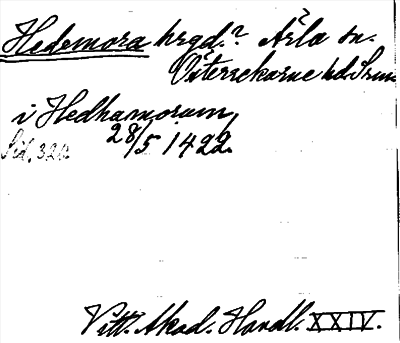 Hedemora hrgd.? Ärla sn.
Österrekarne hd. Srm
i Hedhamorum
28/5 1422.
Sid. 320.
Vitt. Akad. Handl. XXIV.